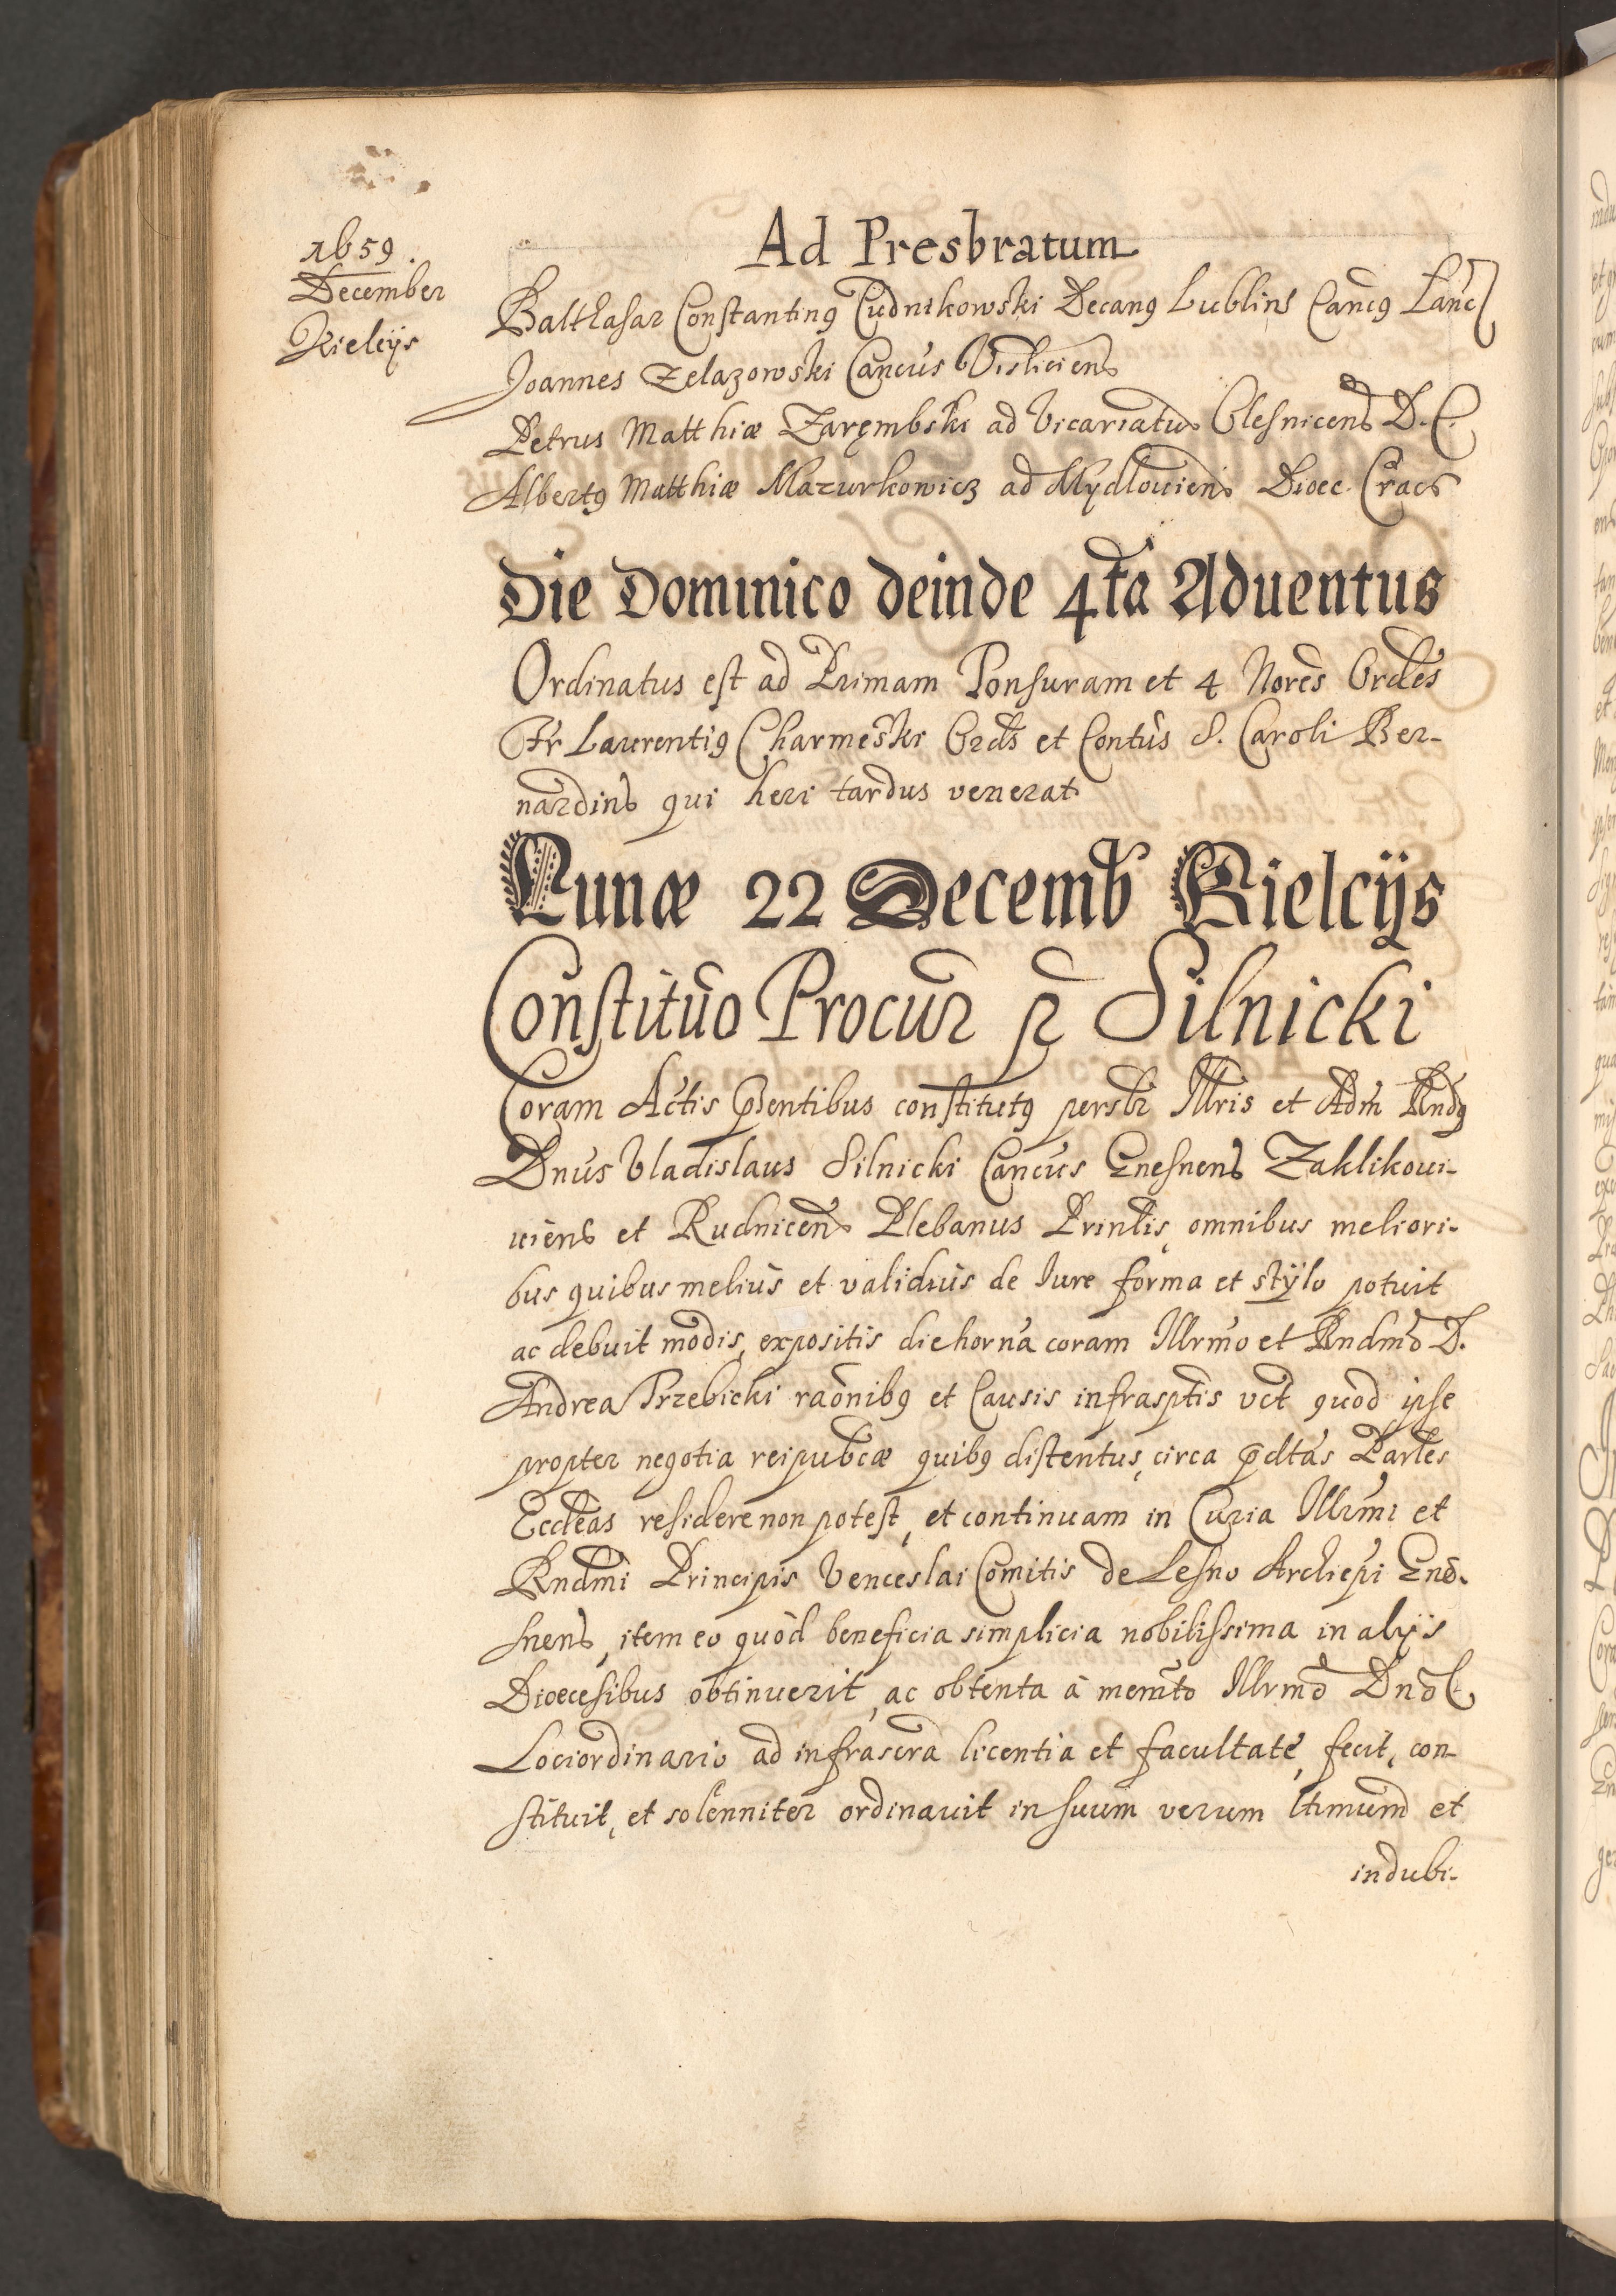 1659.
December
Kielcijs
Ad Presbratum
Balthasar Constantinꝯ Cudnikowski Decanꝯ Lublins Cancꝯ Lanc
Joannes Zelazowski Cancus Visliciens
Petrus Matthiæ Zarembski ad Vicariatus Olesnicens D. C.
Albertꝯ Matthiæ Mazurkowicz ad Mydlouiens Dioec. Cracs
Die Dominico deinde 4ta Aduentus
Ordinatus est ad Primam Tonsuram et 4 Nores Ordes
Fr Laurentiꝯ Charmeski Ords et Contus S. Caroli Ber-
nardins qui heri tardus venerat
Lunæ 22 Decemb Kielcijs
Constituo Procur p Silnicki
Coram Actis pentibus constitutꝯ persbr Illris et Adm Rndꝯ
Dnus Vladislaus Silnicki Cancus Gnesnens Zaklikoui-
uiens et Rudnicens Plebanus Prinlis, omnibus meliori-
bus quibus melius et validius de Iure forma et stÿlo potuit
ac debuit modis, expositis die horna coram Illrmo et Rndmo D.
Andrea Trzebicki raonibꝯ et Causis infrasptis vct quod ipse
propter negotia reipubcæ quibꝯ distentus, circa pdtas Parles
Eccleas residere non potest, et continuam in Curia Illrmi et
Rndmi Principis Venceslai Comitis de Lesno Archiepi Gno-
snens, item eo quòd beneficia simplicia nobilissima in alijs
Dioecesibus obtinuerit, ac obtenta à memto Illrmo Dno
Lociordinario ad infrascra licentia et facultate, fecit, con-
stituit, et solenniter ordinauit in suum verum ltimum et
indubi-